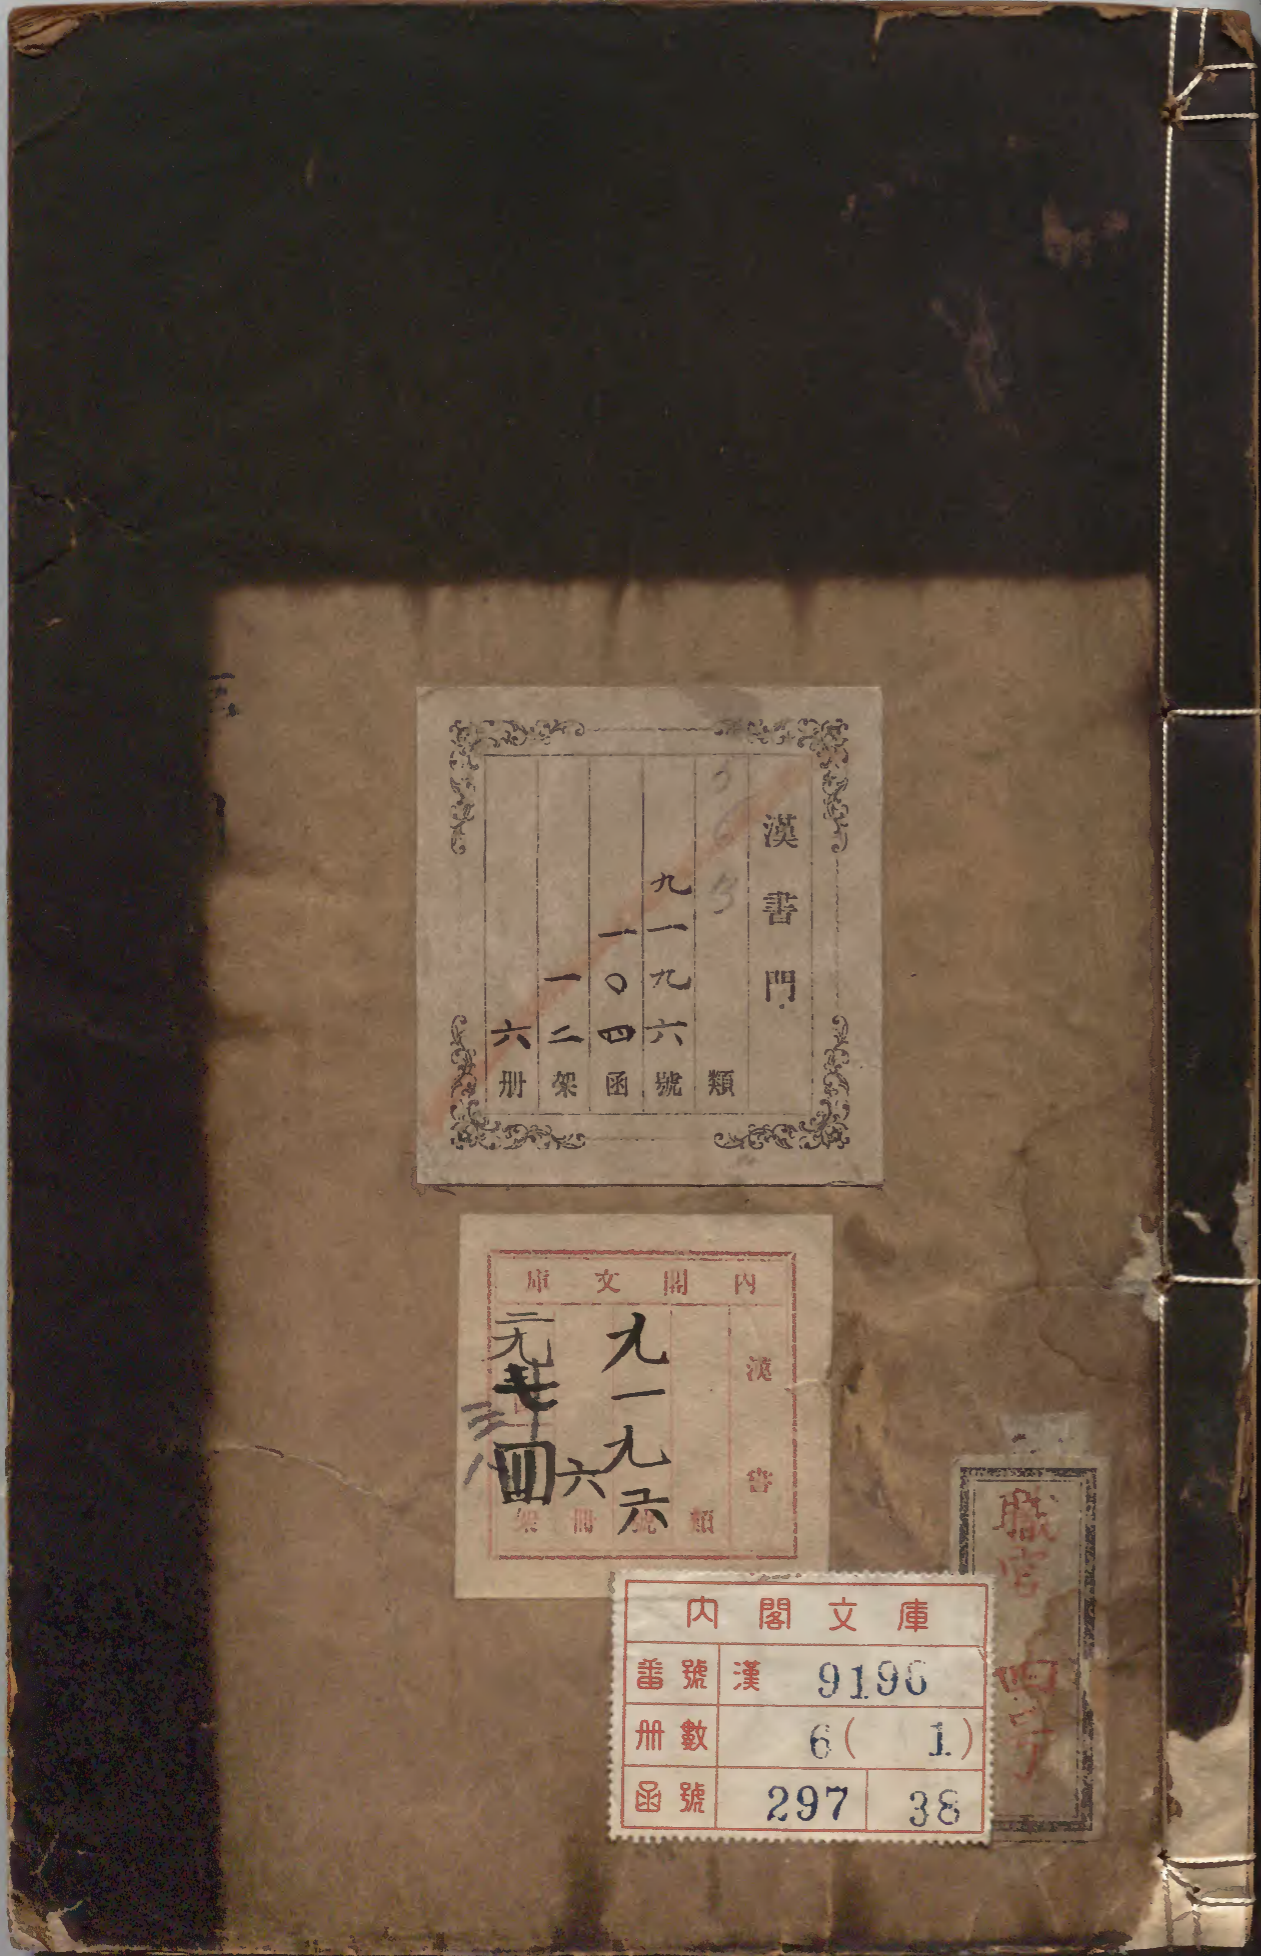 漢書門
類
九一九六號
一〇四函
一二架
六册
内閣文庫
漢書
類
九一九六號
六冊
架
職官
内閣文庫
番號 漢 9196
册數 6( 1)
函號 297 38